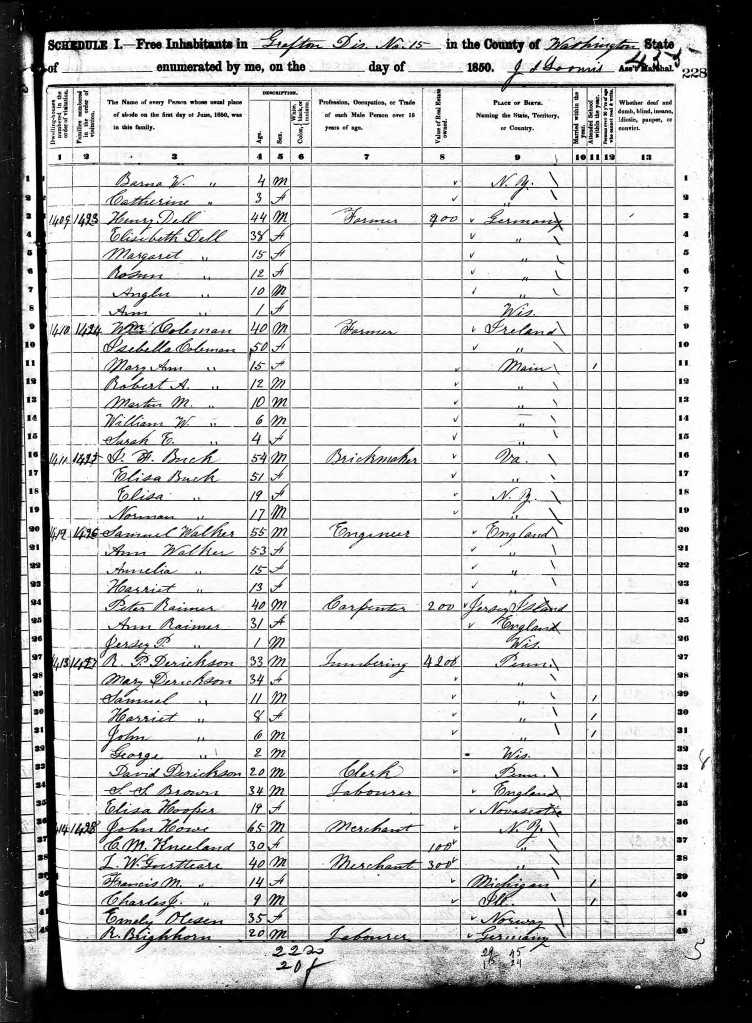 SCHEDULE I.—Free Inhabitants in Grafton Dis. No. 15 in the County of Washington State
of enumerated by me, on the day of 1850. Ass't Marshal.
455
228
Dwelling-houses numbered in the order of visitation.
Families numbered in the order of visitation.
The Name of every Person whose usual place of abode on the first day of June, 1850, was in this family.
DESCRIPTION.
Age.
Sex.
Color, White, black, or mulatto.
Profession, Occupation, or Trade of each Male Person over 15 years of age.
Value of Real Estate owned.
PLACE OF BIRTH. Naming the State, Territory, or Country.
Married within the year.
Attended School within the year.
Persons over 20 y'rs of age who cannot read & write.
Whether deaf and dumb, blind, insane, idiotic, pauper, or convict.
1 2 3 4 5 6 7 8 9 10 11 12 13
1 Barna W. " 4 M N.Y. 1
2 Catherine " 3 F " 2
3 1409 1423 Henry Dell 44 M Farmer 900 Germany 3
4 Elisebeth Dell 38 F " 4
5 Margaret " 15 F " 5
6 Rosun " 12 F " 6
7 " 10 M " 7
8 Ann " 1 F Wis. 8
9 1410 1424 Wm Coleman 40 M Farmer Ireland 9
10 Isebella Coleman 50 F " 10
11 Mary Ann " 15 F Main 1 11
12 Robert A. " 12 M " 12
13 Martin M. " 10 M " 13
14 William W. " 6 M " 14
15 Sarah E. " 4 F " 15
16 1411 1425 Buck 54 M Brickmaker Va. 16
17 Elisa Buck 51 F " 17
18 Elisa " 19 F N.Y. 18
19 Norman " 17 M " 19
20 1412 1426 Samuel Walker 55 M Engineer England 20
21 Ann Walker 53 F " 21
22 Amelia " 15 F " 22
23 Harriet " 13 F " 23
24 Peter Raimer 40 M Carpenter 200 Jersey Island 24
25 Ann Raimer 31 F England 25
26 Jersey P. " 1 M Wis. 26
27 1413 1427 R. P. Derickson 33 M Lumbering 4200 Penn. 27
28 Mary Derickson 34 F " 28
29 Samuel " 11 M " 1 29
30 Harriet " 8 F " 1 30
31 John " 6 M " 1 31
32 George " 2 M Wis. 32
33 David Derickson 20 M Clerk Penn. 33
34 S. S. Brown 34 M Labourer England 34
35 Elisa Hooper 19 F Novascotia 35
36 1414 1428 John Howe 65 M Merchant N.Y. 36
37 C. M. Kneeland 30 F 100 " 37
38 L. W. 40 M Merchant 300 " 38
39 Francis M. " 14 F Michigan 1 39
40 Charles J. " 9 M Ill. 1 40
41 Emely Olesen 35 F Norway 41
42 R. Beighhorn 20 M Labourer Germany 42
222
20
5